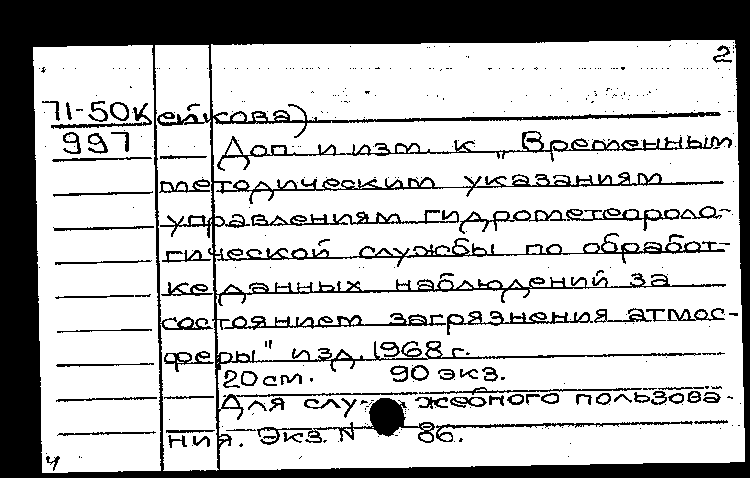 2
71-50к ейкова).
997 Доп. и изм. к „Временным
методическим указаниям
управлениям гидрометеороло-
гической службы по обработ-
ке данных наблюдений за
состоянием загрязнения атмос-
феры" изд. 1968 г.
20 см. 90 экз.
Для слу- жебного пользова-
ния. Экз. N 86.
ч